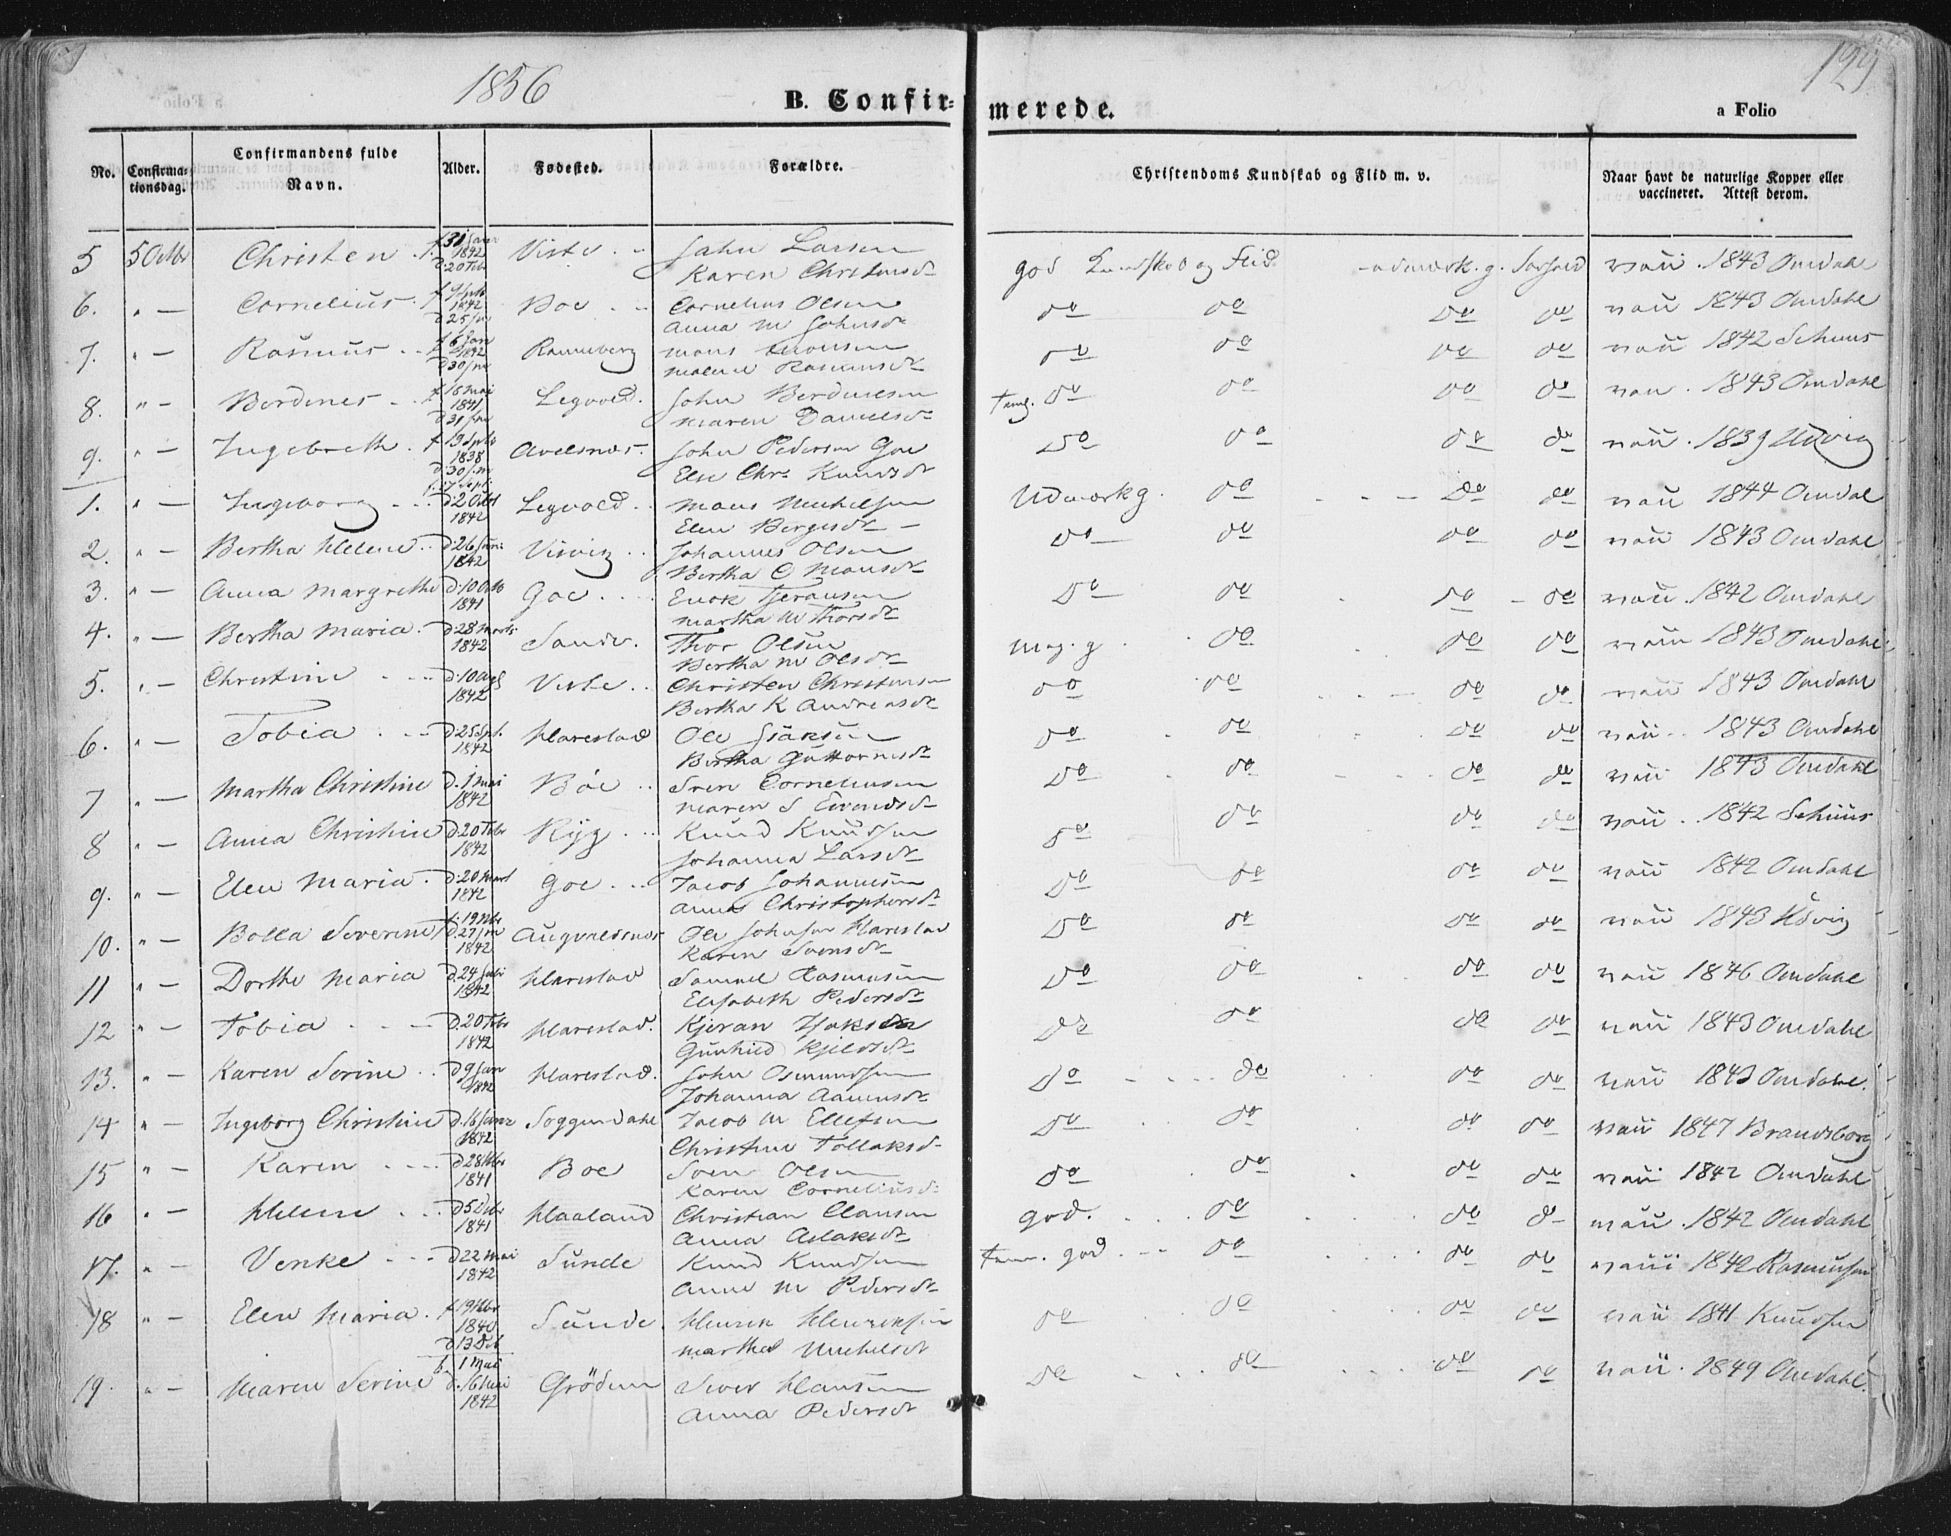 1856
129
B. Confir-
merede.
a Folio
No.
Confirma-
tionsdag.
Confirmandens fulde
Navn.
Alder.
Fødested.
Forældre.
Christendoms Kundskab og Flid m. v.
Naar havt de naturlige Kopper eller
vaccineret. Attest derom.
5 5 Octbr Christen f. 31 Januar 1842 d. 20 Febr Viste John Larsen
Karen Christensd god Kundskab og Flid udmærk. g. Forhold vacc. 1843 Omdahl
6. " — Cornelius 1842 Boe Cornelius Olsen
Anna M Johnsdr do do do do vacc 1843 Omdahl
7. " — Rasmus f 6 Jan 1842 d 30 s.m. Ranneberg Mons
Malene Rasmusdr do do do do vacc 1842 Schuus
8. " — Berdines f 18 Mai 1841 d 31 s.m. Legvold John Berdinesen
Maren Danielsdr do do do do vacc. 1843 Omdahl
9. " — Ingebreth f 19 Septb 1838 d 30 s.m. Avelsnæs John Pedersen Goe
Else Chr. Knudsdr do do do do vacc. 1839 Udvig
1. " — Ingeborg d. 2 Octbr 1842 Legvold Mons Michelsen
Elen Borgesdr — Udmærk g. do do do vacc 1844 Omdal
2. " — Bertha Helene d. 26 Juni 1842 Visvig Johannes Olsen
Bertha O Monsdr do do do do vacc 1843 Omdahl
3. " — Anna Margrethe d. 10 Octb 1841 Goe Enok Tjeransen
Martha M Thorsdr do do do do vacc. 1842 Omdahl
4. " — Bertha Maria d. 28 Marts 1842 Sande Thor Olsen
Bertha M Olsdr meg. g do do do vacc 1843 Omdahl
5. " — Christine d. 10 Aug 1842 Viste Christen Christensen
Bertha K Andreasdr do do do do vacc 1843 Omdahl
6. " — Tobia d 25 Sept. 1842 Harestad Ole Isaksen
Bertha Guttormsdr do do do do vacc. 1843 Omdahl
7 " — Martha Christine d. 1 Mai 1842 Bøe Sven Corneliusen
Maren S Svendsdr do do do do vacc 1843 Omdahl
8 " — Anna Christine d. 20 Febr 1842 Ryg Knud Knudsen
Johanna Larsdr do do do do vacc. 1842 Schuus
9. " — Elen Maria d. 20 Mart 1842 Goe Jacob Johannesen
Anna Christophersdr do do do do vacc 1842 Omdahl
10. " — Bolla Severine f. 19 Nbr d. 27 s.m 1842 Augvaldsnæs Ole Johnsen Harestad
Karen Svensdr do do do do vacc 1843
11 " — Dorthe Maria d. 24 Juli 1842 Harestad Samuel Rasmusen
Elisabeth Pedersdr do do do do vacc 1846 Omdahl
12 " — Tobia d. 20 Febr 1842 Harestad. Kjeran Isaksen
Gunhild Kjeldsdr do do do do vacc 1843 Omdahl
13. " — Karen Serine d 9 Jan 1842 Harestad. John Osmundsen
Johanna Aamunsdr do do do do vacc 1843 Omdahl.
14 " — Ingeborg Christine d. 16 Janr 1842 Soggendahl Jacob M Ellefsen
Christine Tollaksd do do do do vacc 1847 Brandsborg
15 " — Karen d 28 Nbr 1841 Boe Sven Olsen
Karen Corneliusd. do do do do vacc 1842 Omdahl
16 " — Helene d 5 Dbr 1841 Haaland Christian Clausen
Anna Aslaksdr god. do do do vacc. 1842 Omdahl
17. " — Venke d 22 Mai 1842 Sunde Knud Knudsen
Anne M Pedersdr god do do do vacc 1842 Rasmussen
18 " — Elen Maria f. 19 Nbr 1840 d 13 Deb Sunde Henrik Henriksen
Martha Michelsdr do do do do vacc 1841 Knudsen
19. " — Maren Serine f. 1 Mai d. 16 Mai 1842 Grödem Siver Hansen
Anna Pedersdr do do do do vacc. 1849 Omdahl.